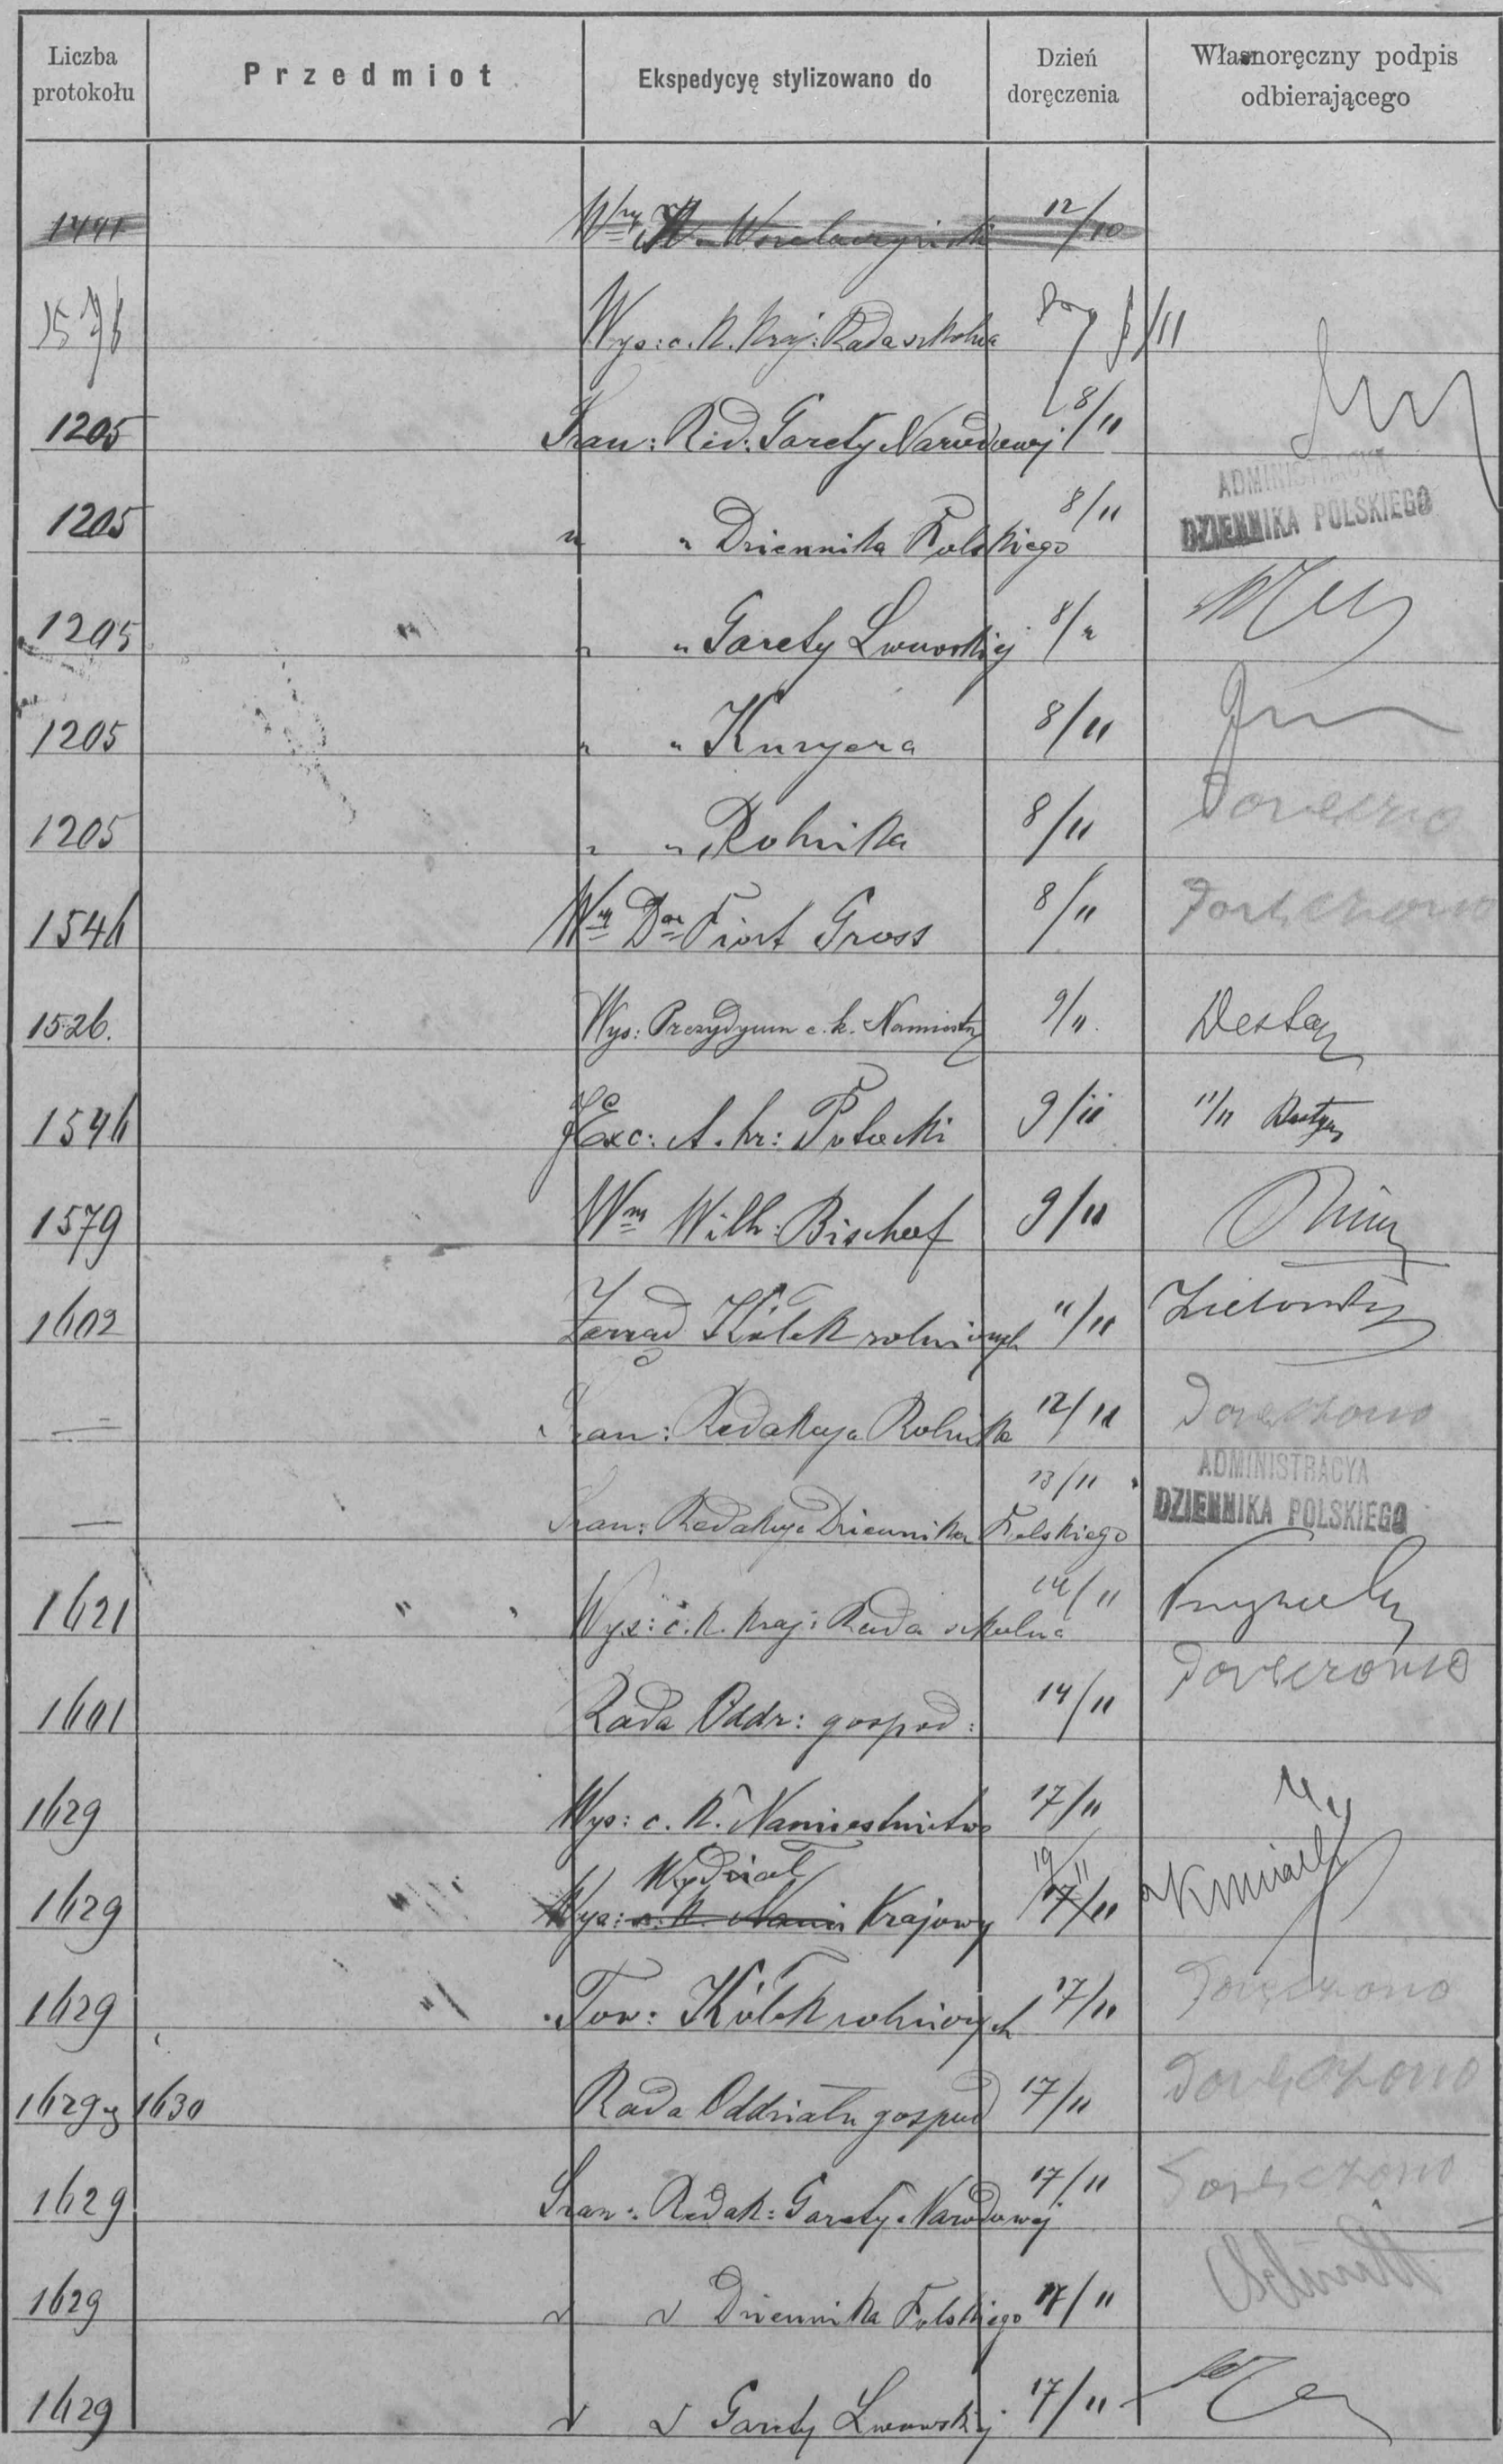 Liczba protokołu Przedmiot Ekspedycyę stylizowano do Dzień doręczenia Własnoręczny podpis odbierającego
1441 Wny 12/10
1576 Wys: c. k. Kraj: Rada szkolna 8/11
1205 Szan: Red: Gazety Narodowej 8/11
ADMINISTRACYA
1205 " " Dziennika Polskiego 8/11 DZIENNIKA POLSKIEGO
1205 " " " Gazety Lwowskiej 8/11
1205 " " Kuryera 8/11
1205 " " Rolnika 8/11 Doręczno
1546 Wny Dor Piotr Gross 8/11 Doręczono
1526. Wys: Prezydyum c. k. Namiestn 9/11
1546 JExc: A. hr: Potocki 9/11 11/11
1579 Wny Wilh: Bischof 9/11
1602 Zarząd Kółek rolniczych 11/11
— Szan: Redakcya Rolnika 12/11 Doręczono
ADMINISTRACYA
— Szan: Redakcya Dziennika Polskiego 13/11 DZIENNIKA POLSKIEGO
1621 " Wys: c. k. Kraj: Rada szkolna 14/11
1601 Rada Oddz: gospod: 14/11 Doręczono
1629 Wys: c. k. Namiestnictwo 17/11
Wydział 19/11
1629 " Wys: c. k. Namies Krajowy 17/11
1629 " Tow: Kółek rolniczych 17/11 Doręczono
1629 i 1630 Rada Oddziału gospod 17/11 Doręczono
1629 Szan: Redak: Gazety Narodowej 17/11 Doręczono
1629 " " Dziennika Polskiego 17/11
1629 " " Gazety Lwowskiej 17/11